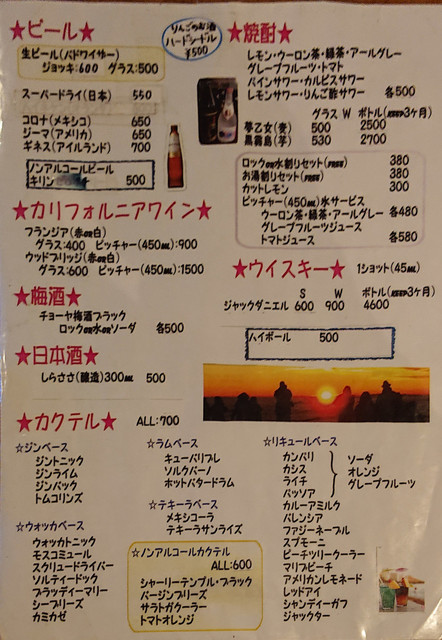 ★ビール★
生ビール(バドワイザー)
ジョッキ:600 グラス:500
スーパードライ(日本) 550
コロナ(メキシコ) 650
ジーマ(アメリカ) 650
ギネス(アイルランド) 700
ノンアルコールビール
キリン 500
りんごのお酒
ハードシードル
¥500
★カリフォルニアワイン★
フランジア(赤or白)
グラス:400 ピッチャー(450ml):900
ウッドブリッジ(赤or白)
グラス:600 ピッチャー(450ml):1500
★梅酒★
チョーヤ梅酒ブラック
ロックor水orソーダ 各500
★日本酒★
しらささ(醸造)300ml 500
★焼酎★
レモン・ウーロン茶・緑茶・アールグレー
グレープフルーツ・トマト
パインサワー・カルピスサワー
レモンサワー・りんご酢サワー 各500
グラス W ボトル(KEEP3ヶ月)
夢乙女(麦) 500 2500
黒霧島(芋) 530 2700
ロックor水割りセット(FREE) 380
お湯割りセット(FREE) 380
カットレモン 300
ピッチャー(450ml)水サービス
ウーロン茶・緑茶・アールグレー 各480
グレープフルーツジュース
トマトジュース 各580
★ウイスキー★ 1ショット(45ml)
S W ボトル(KEEP3ヶ月)
ジャックダニエル 600 900 4600
ハイボール 500
★カクテル★ ALL:700
☆ジンベース
ジントニック
ジンライム
ジンバック
トムコリンズ
☆ウォッカベース
ウォッカトニック
モスコミュール
スクリュードライバー
ソルティードック
ブラッディーマリー
シーブリーズ
カミカゼ
☆ラムベース
キューバリブレ
ソルクバーノ
ホットバタードラム
☆テキーラベース
メキシコーラ
テキーラサンライズ
☆ノンアルコールカクテル
ALL:600
シャーリーテンプル・ブラック
バージンブリーズ
サラトガクーラー
トマトオレンジ
☆リキュールベース
カンパリ
カシス
ライチ
パッソア
ソーダ
オレンジ
グレープフルーツ
カルーアミルク
バレンシア
ファジーネーブル
スプモーニ
ピーチツリークーラー
マリブピーチ
アメリカンレモネード
レッドアイ
シャンディーガフ
ジャックター